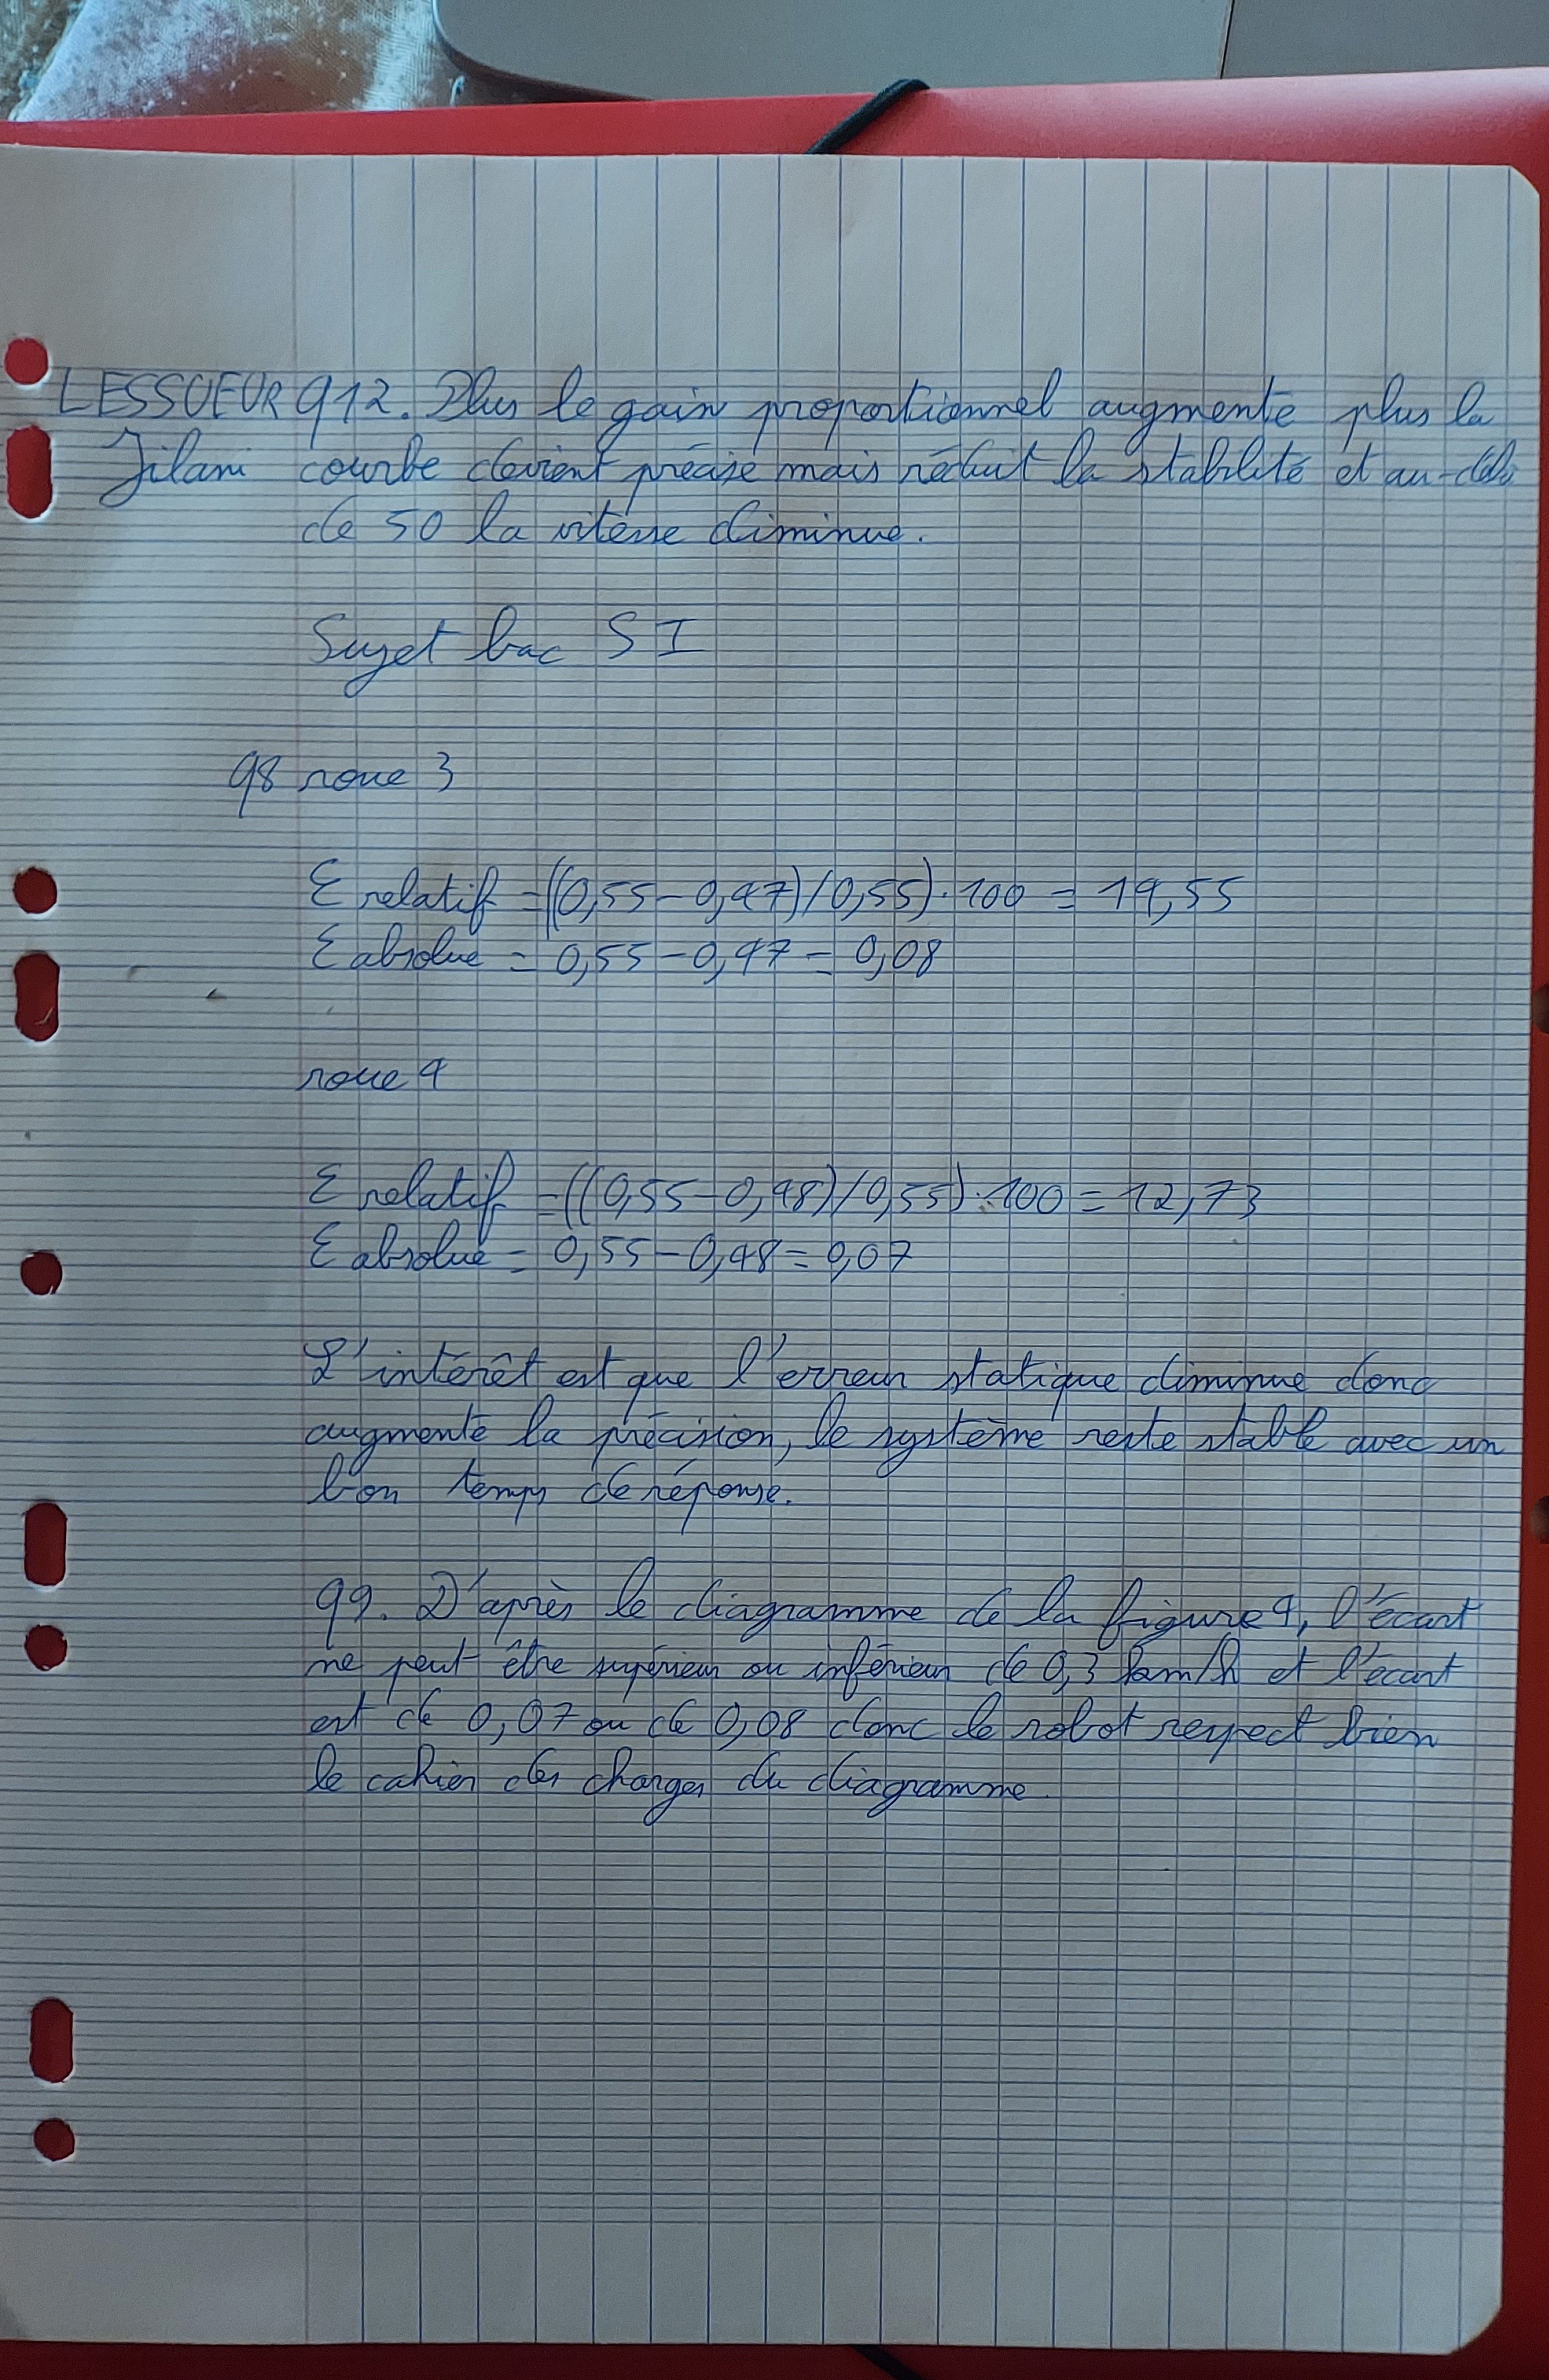 LESSUEUR q12. Plus le gain proportionnel augmente plus la
Jilani courbe devient précise mais réduit la stabilité et au-delà
de 50 la vitesse diminue.
Sujet bac SI
q8 roue 3
Σ relatif = ((0,55-0,47)/0,55)·100 = 14,55
Σ absolue = 0,55-0,47 = 0,08
roue 4
Σ relatif = ((0,55-0,48)/0,55)·100 = 12,73
Σ absolue = 0,55-0,48 = 0,07
L'intérêt est que l'erreur statique diminue donc
augmente la précision, le système reste stable avec un
bon temps de réponse.
q9. D'après le diagramme de la figure 4, l'écart
ne peut être supérieur ou inférieur de 0,3 km/h et l'écart
est de 0,07 ou de 0,08 donc le robot respect bien
le cahier des charges du diagramme.